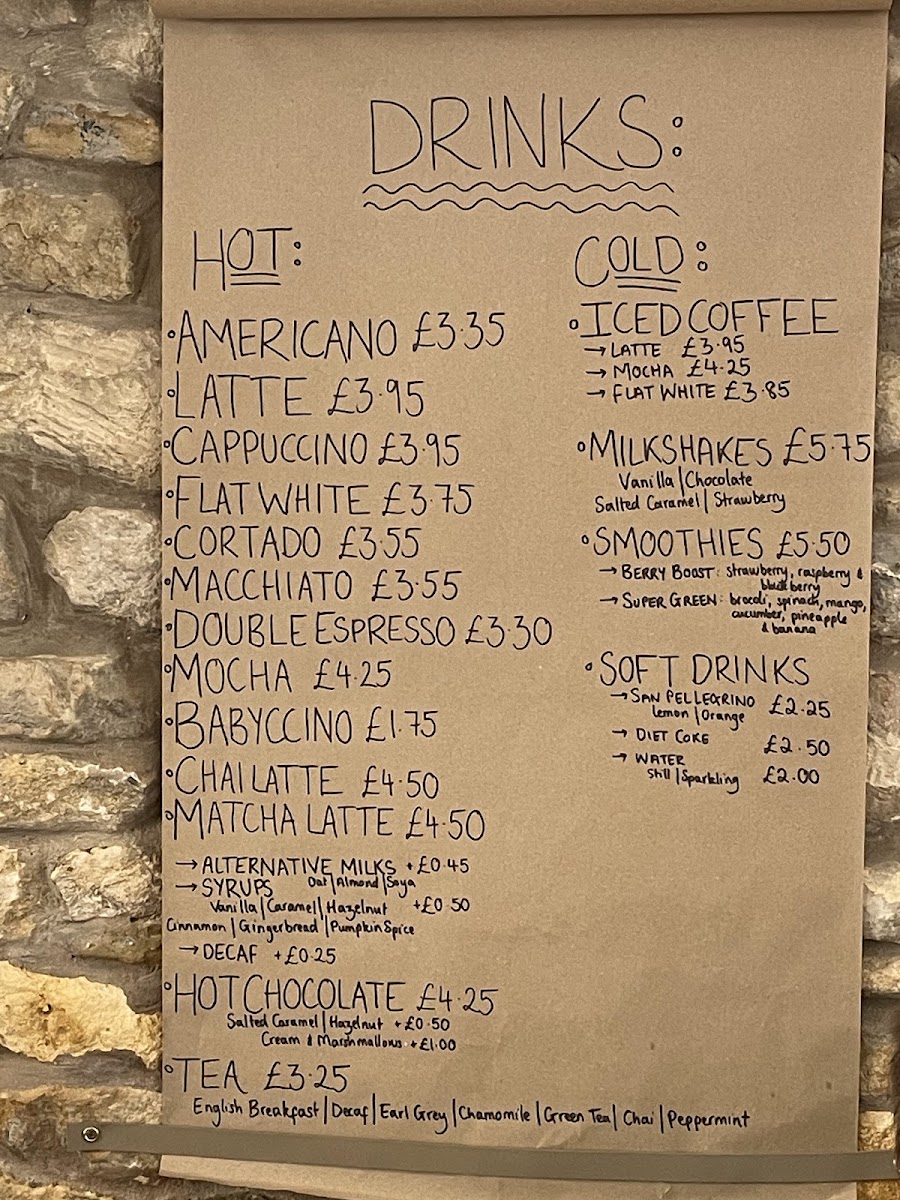 DRINKS:
HOT:
°AMERICANO £3.35
°LATTE £3.95
°CAPPUCCINO £3.95
°FLAT WHITE £3.75
°CORTADO £3.55
°MACCHIATO £3.55
°DOUBLE ESPRESSO £3.30
°MOCHA £4.25
°BABYCCINO £1.75
°CHAI LATTE £4.50
°MATCHA LATTE £4.50
→ALTERNATIVE MILKS +£0.45
Oat|Almond|Soya
→SYRUPS
Vanilla|Caramel|Hazelnut +£0.50
Cinnamon|Gingerbread|Pumpkin Spice
→DECAF +£0.25
°HOT CHOCOLATE £4.25
Salted Caramel|Hazelnut +£0.50
Cream & Marshmallows +£1.00
°TEA £3.25
English Breakfast|Decaf|Earl Grey|Chamomile|Green Tea|Chai|Peppermint
COLD:
°ICED COFFEE
→LATTE £3.95
→MOCHA £4.25
→FLAT WHITE £3.85
°MILKSHAKES £5.75
Vanilla|Chocolate
Salted Caramel|Strawberry
°SMOOTHIES £5.50
→BERRY BOOST: strawberry, raspberry &
blackberry
→SUPER GREEN: brocoli, spinach, mango,
cucumber, pineapple
& banana
°SOFT DRINKS
→SAN PELLEGRINO £2.25
lemon|Orange
→DIET COKE £2.50
→WATER
Still|Sparkling £2.00